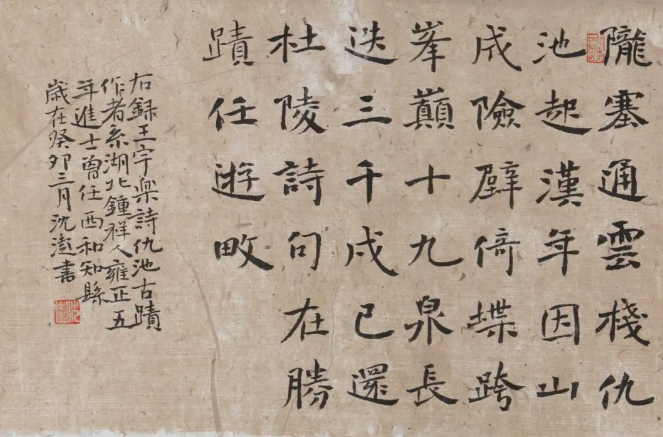 隴塞通雲棧仇
池起漢年因山
成險壁倚堞跨
峯巔十九泉長
迭三千戍已還
杜陵詩句在勝
蹟任遊畋
右録王宇樂詩仇池古蹟
作者系湖北鍾祥人雍正五
年進士曾任西和知縣
歲在癸卯三月沈書